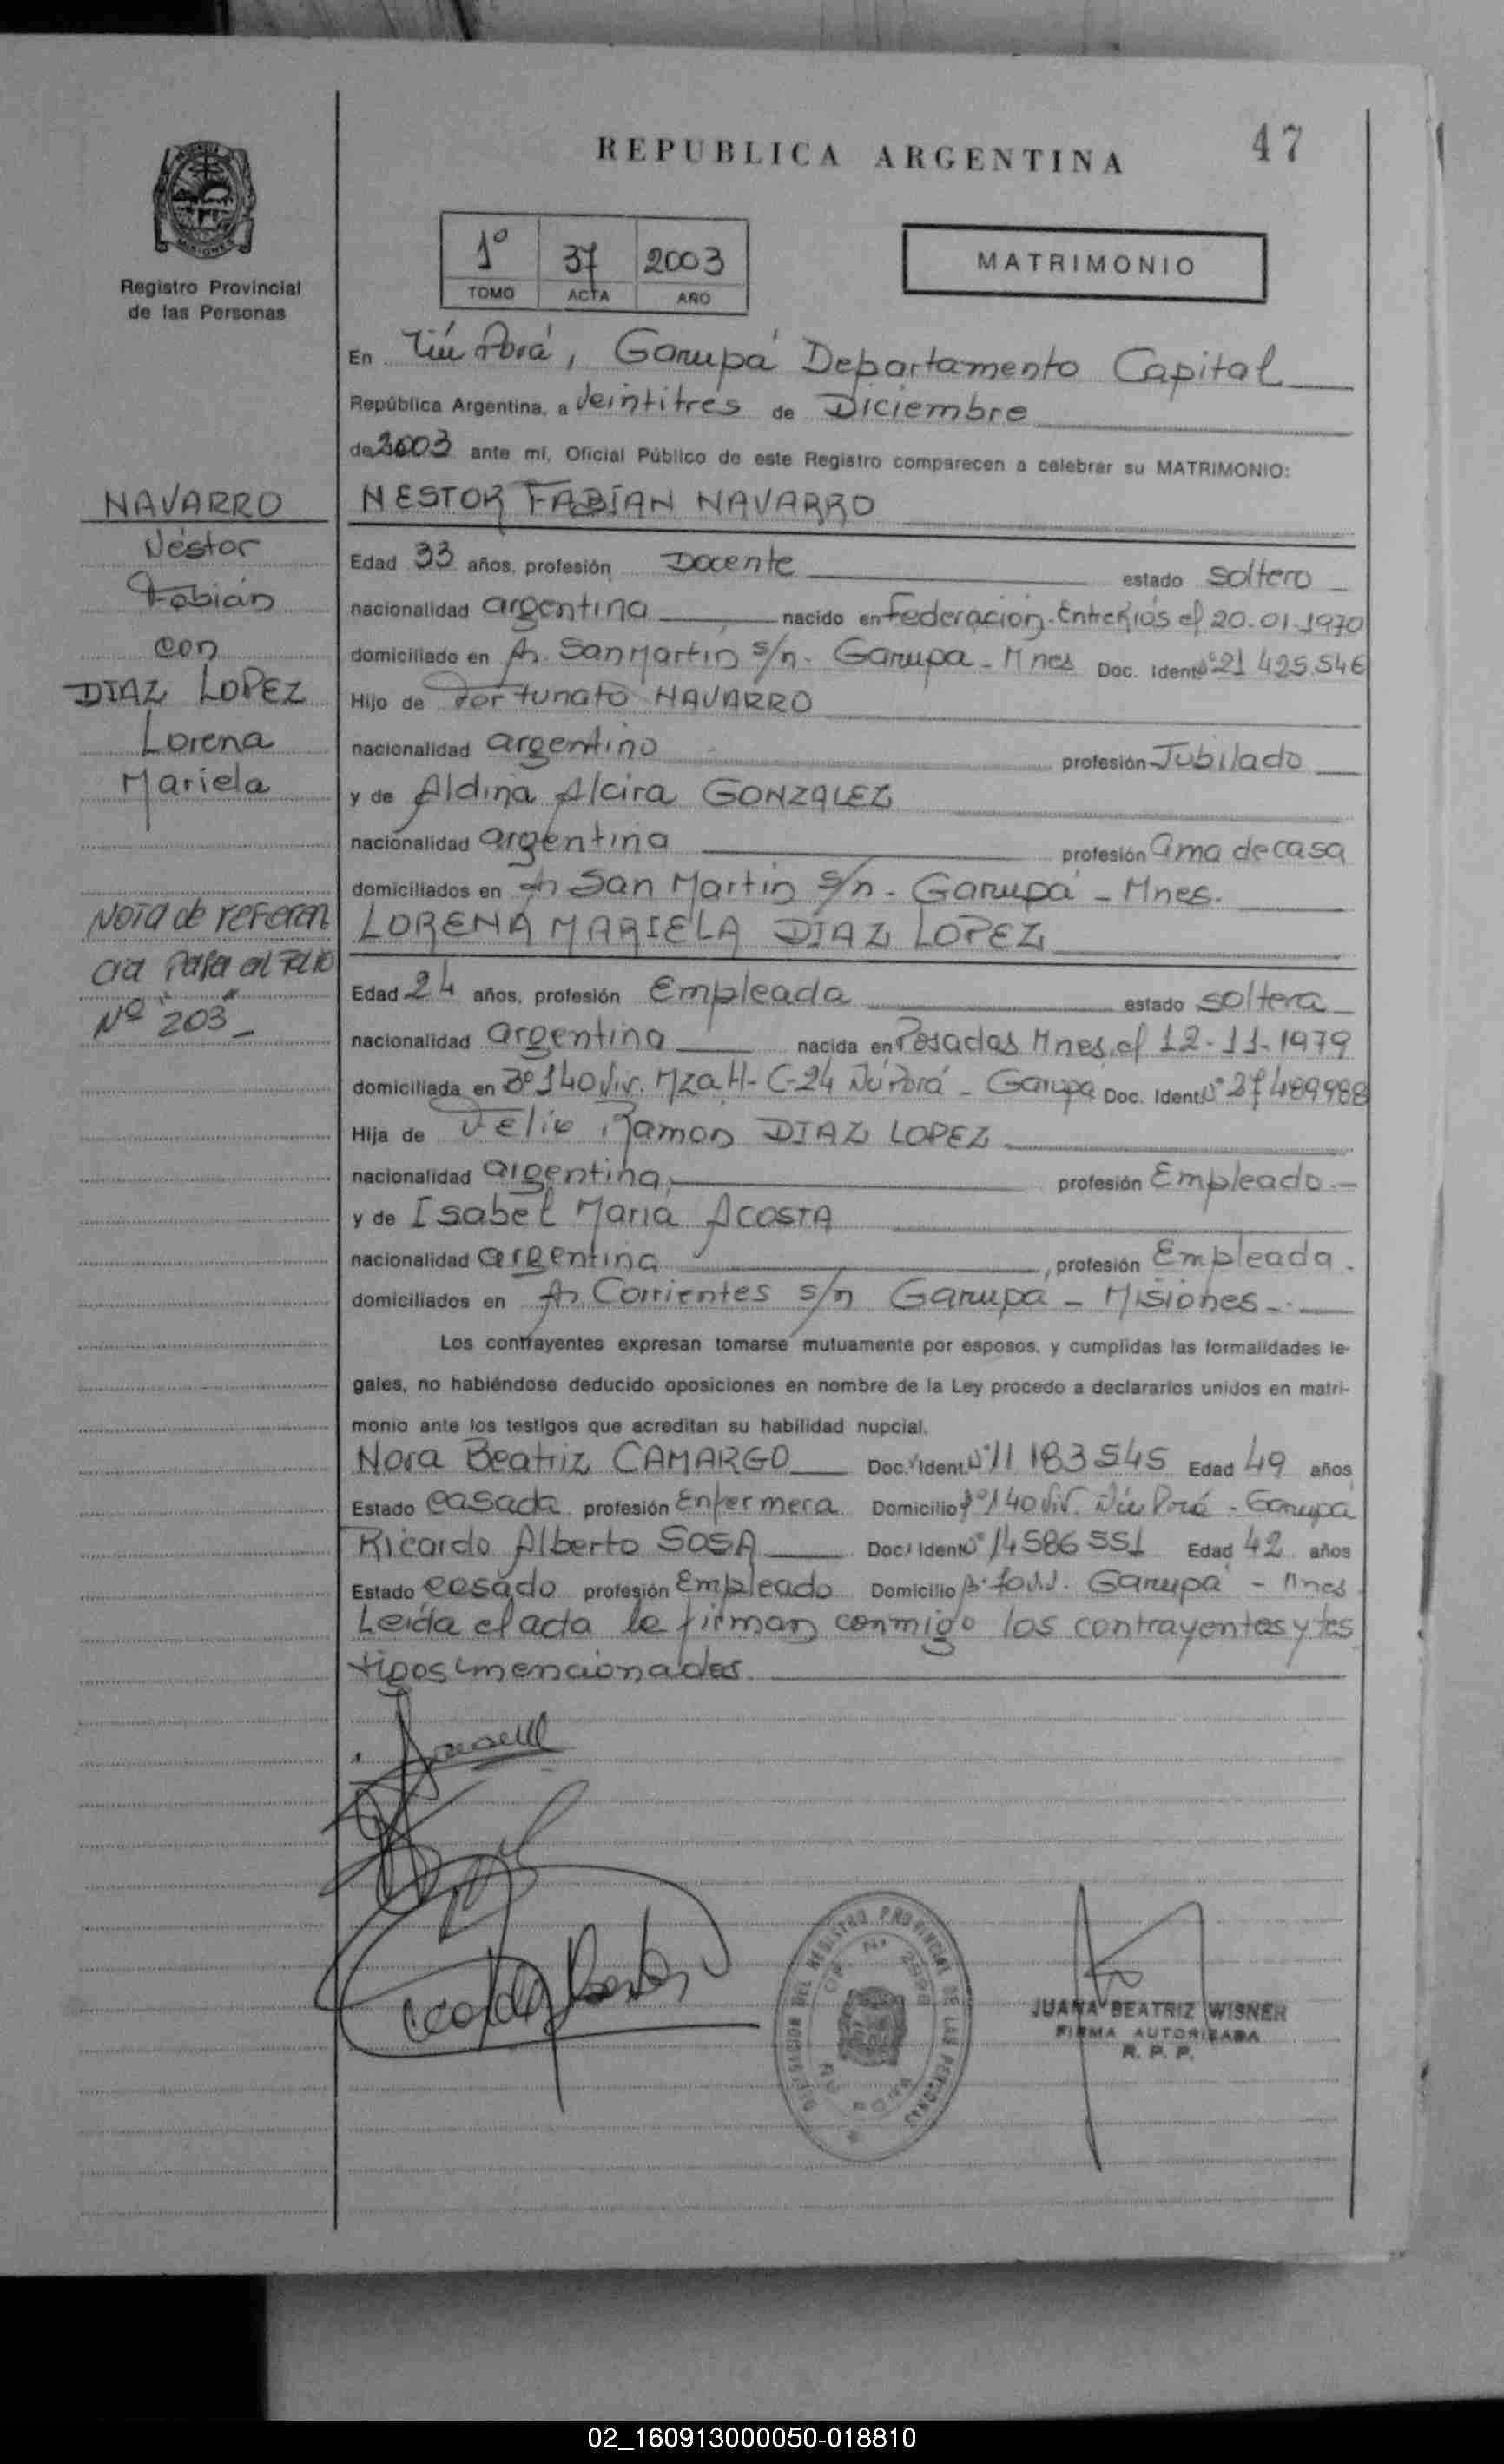 REPUBLICA ARGENTINA
47
MISIONES
Registro Provincial
de las Personas
1º 37 2003
TOMO ACTA AÑO
MATRIMONIO
En Ñú Porá, Garupá Departamento Capital
República Argentina, a Veintitrés de Diciembre
de 2003 ante mí, Oficial Público de este Registro comparecen a celebrar su MATRIMONIO:
NAVARRO
Néstor
Fabián
con
DIAZ LOPEZ
Lorena
Mariela
Nota de referen
cia Pasa al Folio
Nº "203"-
NESTOR FABIAN NAVARRO
Edad 33 años, profesión Docente estado soltero
nacionalidad argentina nacido en Federación-Entre Ríos el 20.01.1970
domiciliado en Av. San Martin s/n. Garupa - Mnes Doc. Ident. Nº 21 425.546
Hijo de Fortunato NAVARRO
nacionalidad argentino profesión Jubilado
y de Aldina Alcira GONZALEZ
nacionalidad argentina profesión ama de casa
domiciliados en Av San Martin s/n - Garupá - Mnes.
LORENA MARIELA DIAZ LOPEZ
Edad 24 años, profesión Empleada estado soltera
nacionalidad argentina nacida en Posadas Mnes. el 12-11-1979
domiciliada en Bº 140 Viv. Mza H- C-24 Ñú Porá - Garupa Doc. Ident. Nº 27 489988
Hija de Felix Ramon DIAZ LOPEZ
nacionalidad argentina, profesión Empleado.-
y de Isabel Maria ACOSTA
nacionalidad argentina, profesión Empleada.
domiciliados en Av Corrientes s/n Garupá - Misiones-.
Los contrayentes expresan tomarse mutuamente por esposos, y cumplidas las formalidades le-
gales, no habiéndose deducido oposiciones en nombre de la Ley procedo a declararlos unidos en matri-
monio ante los testigos que acreditan su habilidad nupcial.
Nora Beatriz CAMARGO Doc. Ident. Nº 11 183545 Edad 49 años
Estado casada profesión Enfermera Domicilio Bº 140 Viv. Ñú Porá - Garupa
Ricardo Alberto SOSA Doc. Ident. Nº 14586551 Edad 42 años
Estado casado profesión Empleado Domicilio Garupá - Mnes
Leída el acta la firman conmigo los contrayentes y tes
tigos mencionados.
DEL REGISTRO PROVINCIAL DE LAS PERSONAS
JUANA BEATRIZ WISNER
FIRMA AUTORIZADA
R. P. P.
02_160913000050-018810